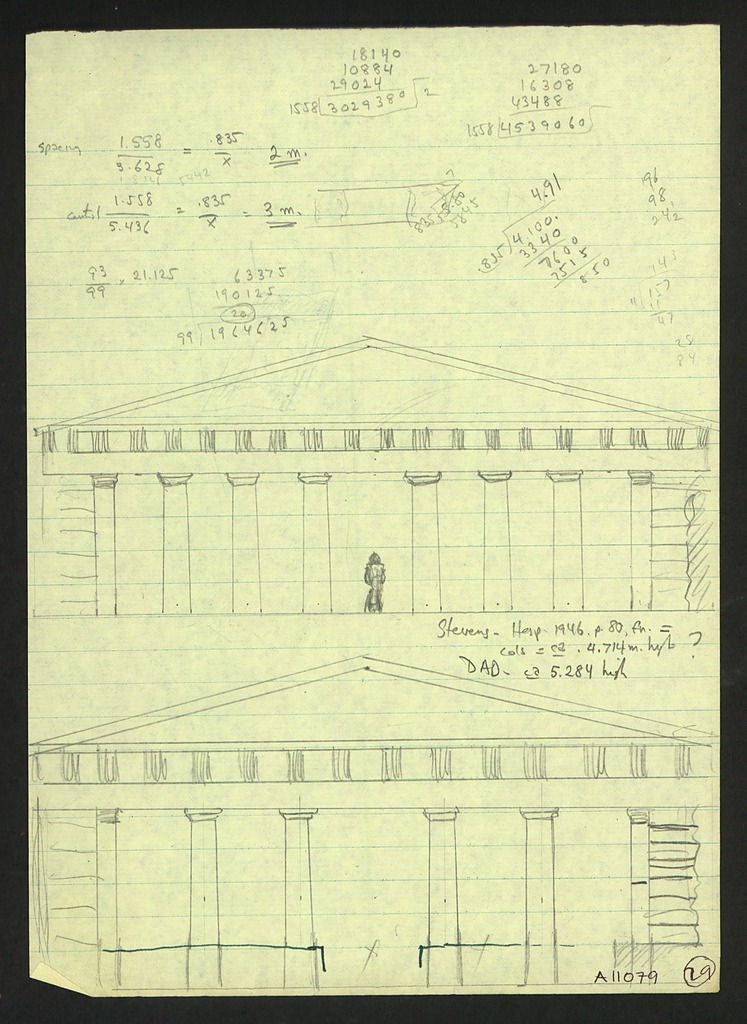 18140
10884
29024
1558 3029380 2
27180
16308
43488
1558 4539060
spacing 1.558 = .835 2 m.
3.628 x
1.558 = .835 = 3 m.
5.436 x
4.91
.835 4,100.
3340
7600
7515
850
196
98
242
143
11 157
11
47
28
84
93 . 21.125
99
63375
190125
20
99 1964625
Stevens - Hesp. 1946, p. 80, fn. =
cols = ca . 4.714 m. high ?
DAD - ca 5.284 high
A11079 29